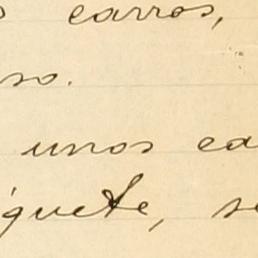 carros,
so.
unos ca
guete, se